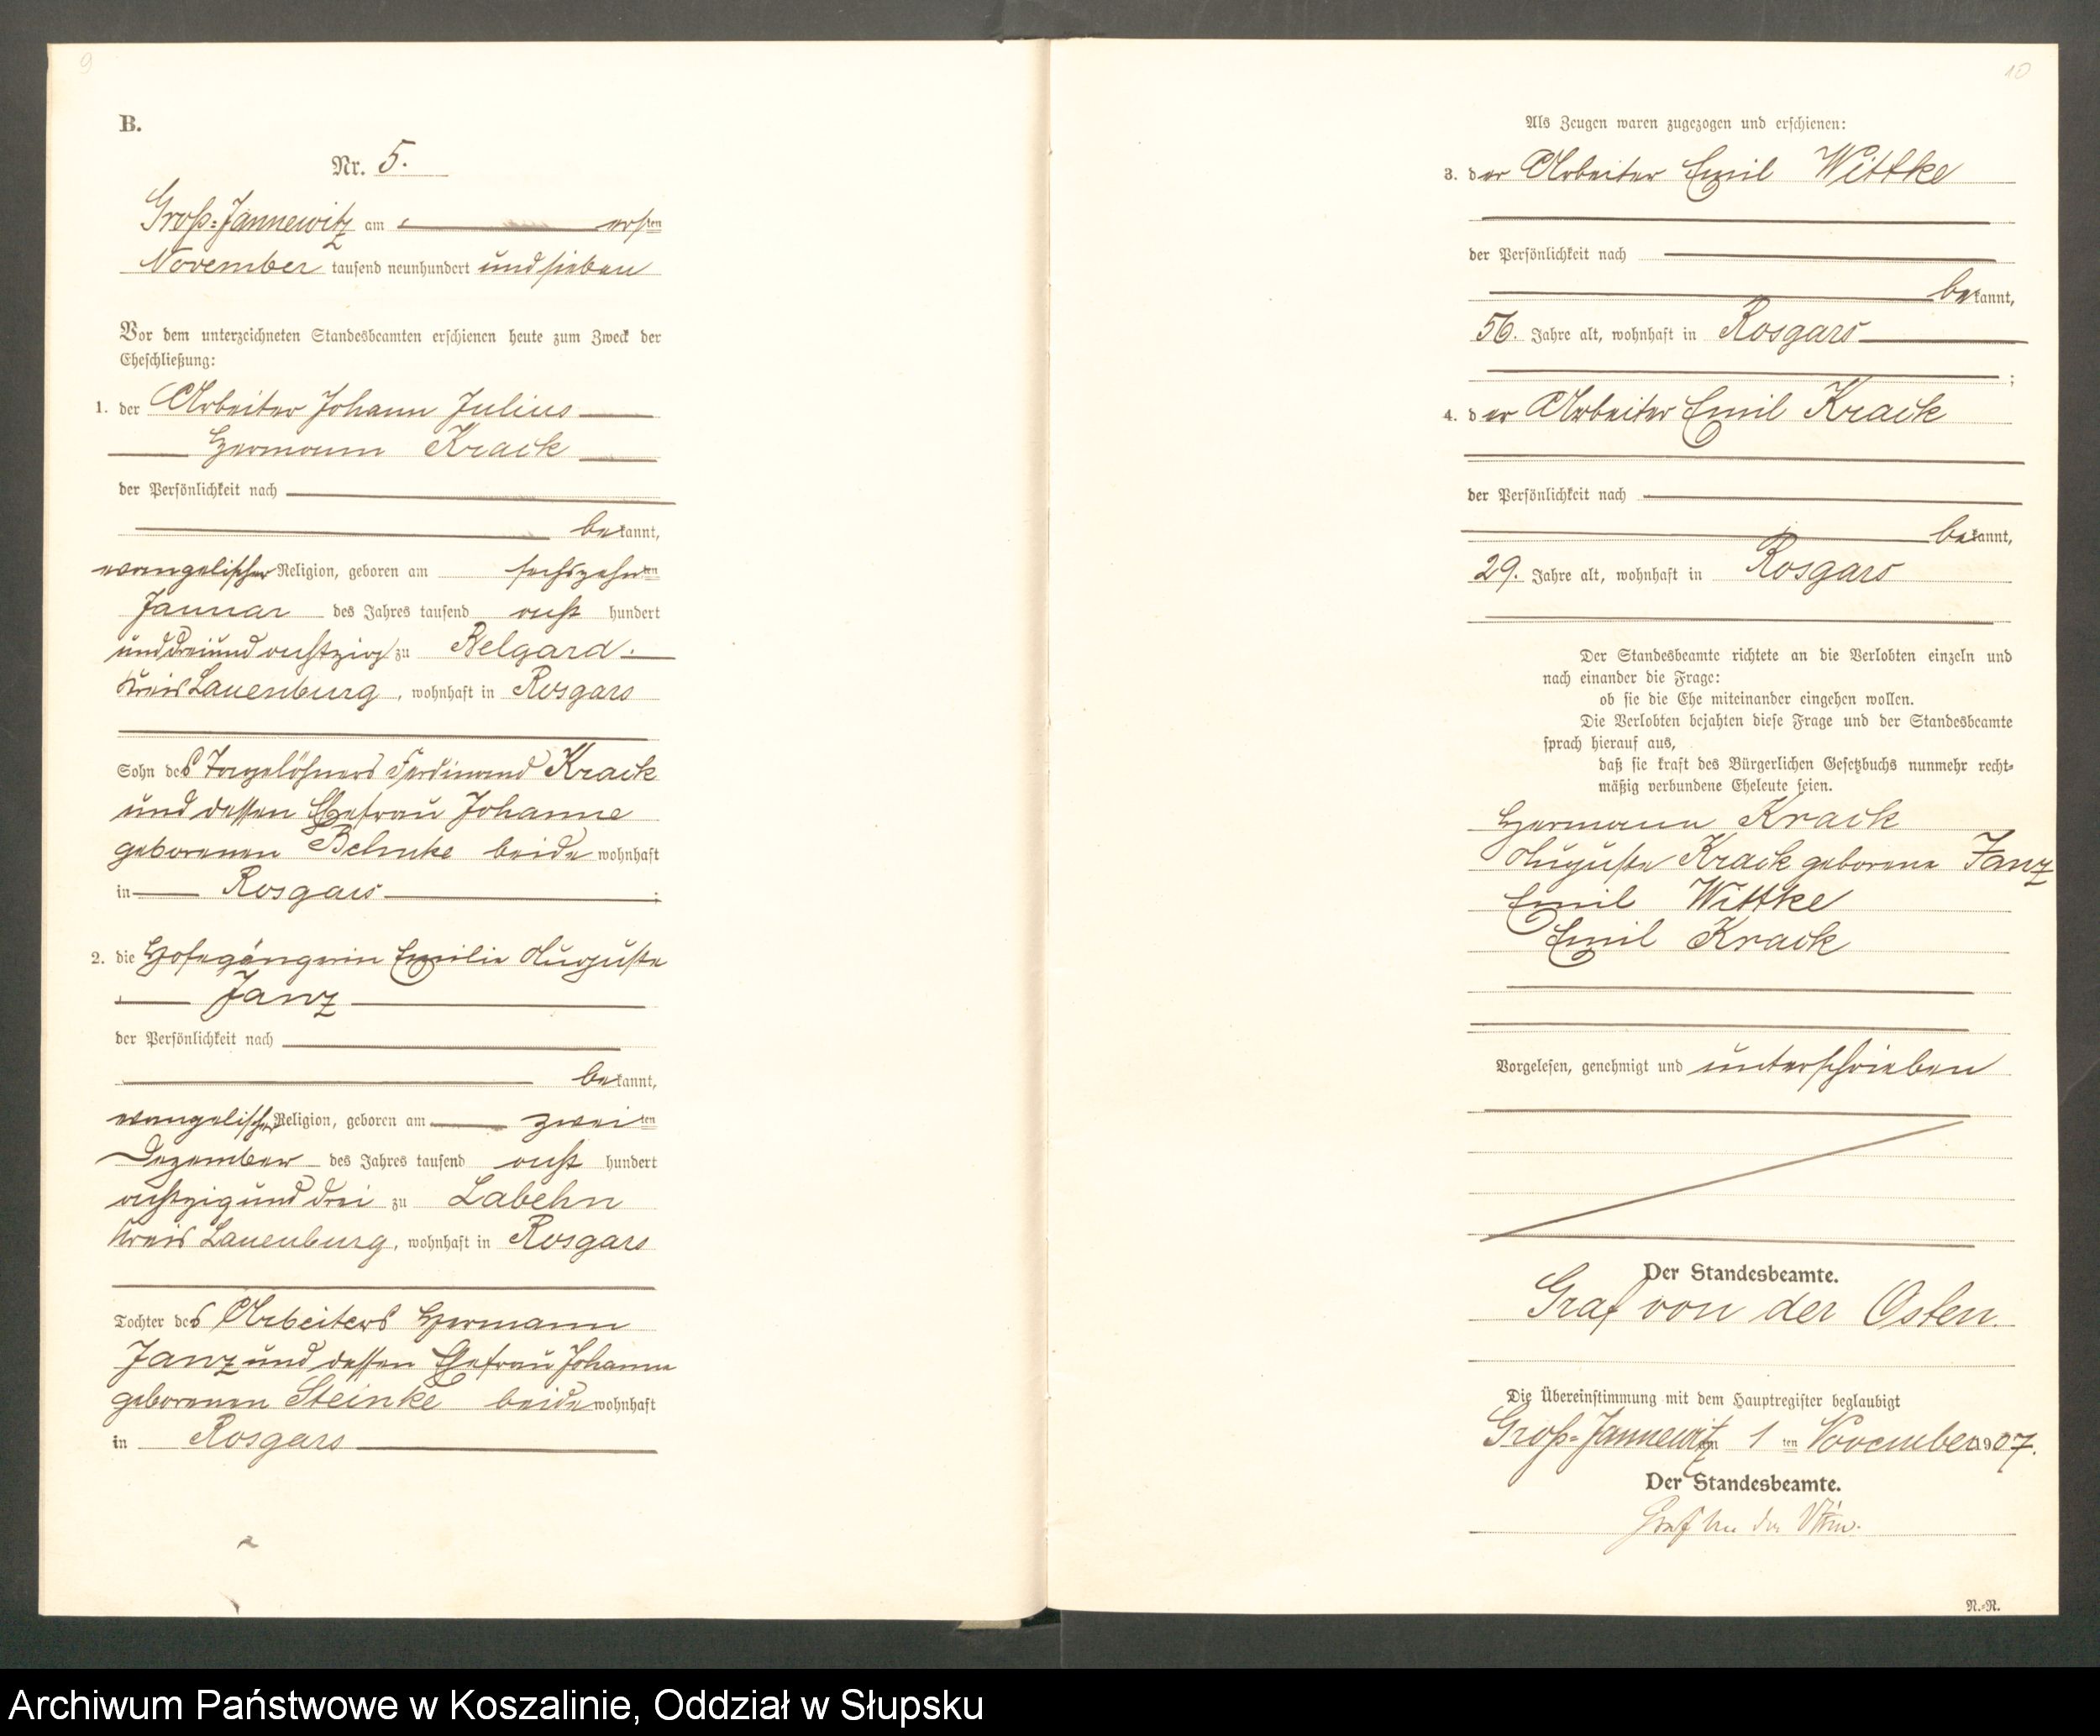 9
B.
Nr. 5.
Groß-Jannewitz am ersten
November tausend neunhundert und sieben
Vor dem unterzeichneten Standesbeamten erschienen heute zum Zweck der
Eheschließung:
1. der Arbeiter Johann Julius
Hermann Krack
der Persönlichkeit nach
bekannt,
evangelischer Religion, geboren am sechszehnten
Januar des Jahres tausend acht hundert
und dreiundachtzig zu Belgard.
Kreis Lauenburg, wohnhaft in Rosgars
Sohn des Tagelöhners Ferdinand Krack
und dessen Ehefrau Johanne
geborenen Behnke beide wohnhaft
in Rosgars ;
2. die Hofegängerin Emilie Auguste
Janz
der Persönlichkeit nach
bekannt,
evangelischer Religion, geboren am zweiten
Dezember des Jahres tausend acht hundert
achtzig und drei zu Labehn
Kreis Lauenburg, wohnhaft in Rosgars
Tochter des Arbeiters Hermann
Janz und dessen Ehefrau Johanne
geborenen Steinke beide wohnhaft
in Rosgars
10
Als Zeugen waren zugezogen und erschienen:
3. der Arbeiter Emil Wittke
der Persönlichkeit nach
bekannt,
56. Jahre alt, wohnhaft in Rosgars
;
4. der Arbeiter Emil Krack
der Persönlichkeit nach
bekannt,
29. Jahre alt, wohnhaft in Rosgars
Der Standesbeamte richtete an die Verlobten einzeln und
nach einander die Frage:
ob sie die Ehe miteinander eingehen wollen.
Die Verlobten bejahten diese Frage und der Standesbeamte
sprach hierauf aus,
daß sie kraft des Bürgerlichen Gesetzbuchs nunmehr recht-
mäßig verbundene Eheleute seien.
Hermann Krack
Auguste Krack geborene Janz
Emil Wittke
Emil Krack
Vorgelesen, genehmigt und unterschrieben
Der Standesbeamte.
Graf von der Osten.
Die Übereinstimmung mit dem Hauptregister beglaubigt
Groß-Jannewitz am 1 ten November 1907.
Der Standesbeamte.
Graf von der Osten.
N.-R.
Archiwum Państwowe w Koszalinie, Oddział w Słupsku